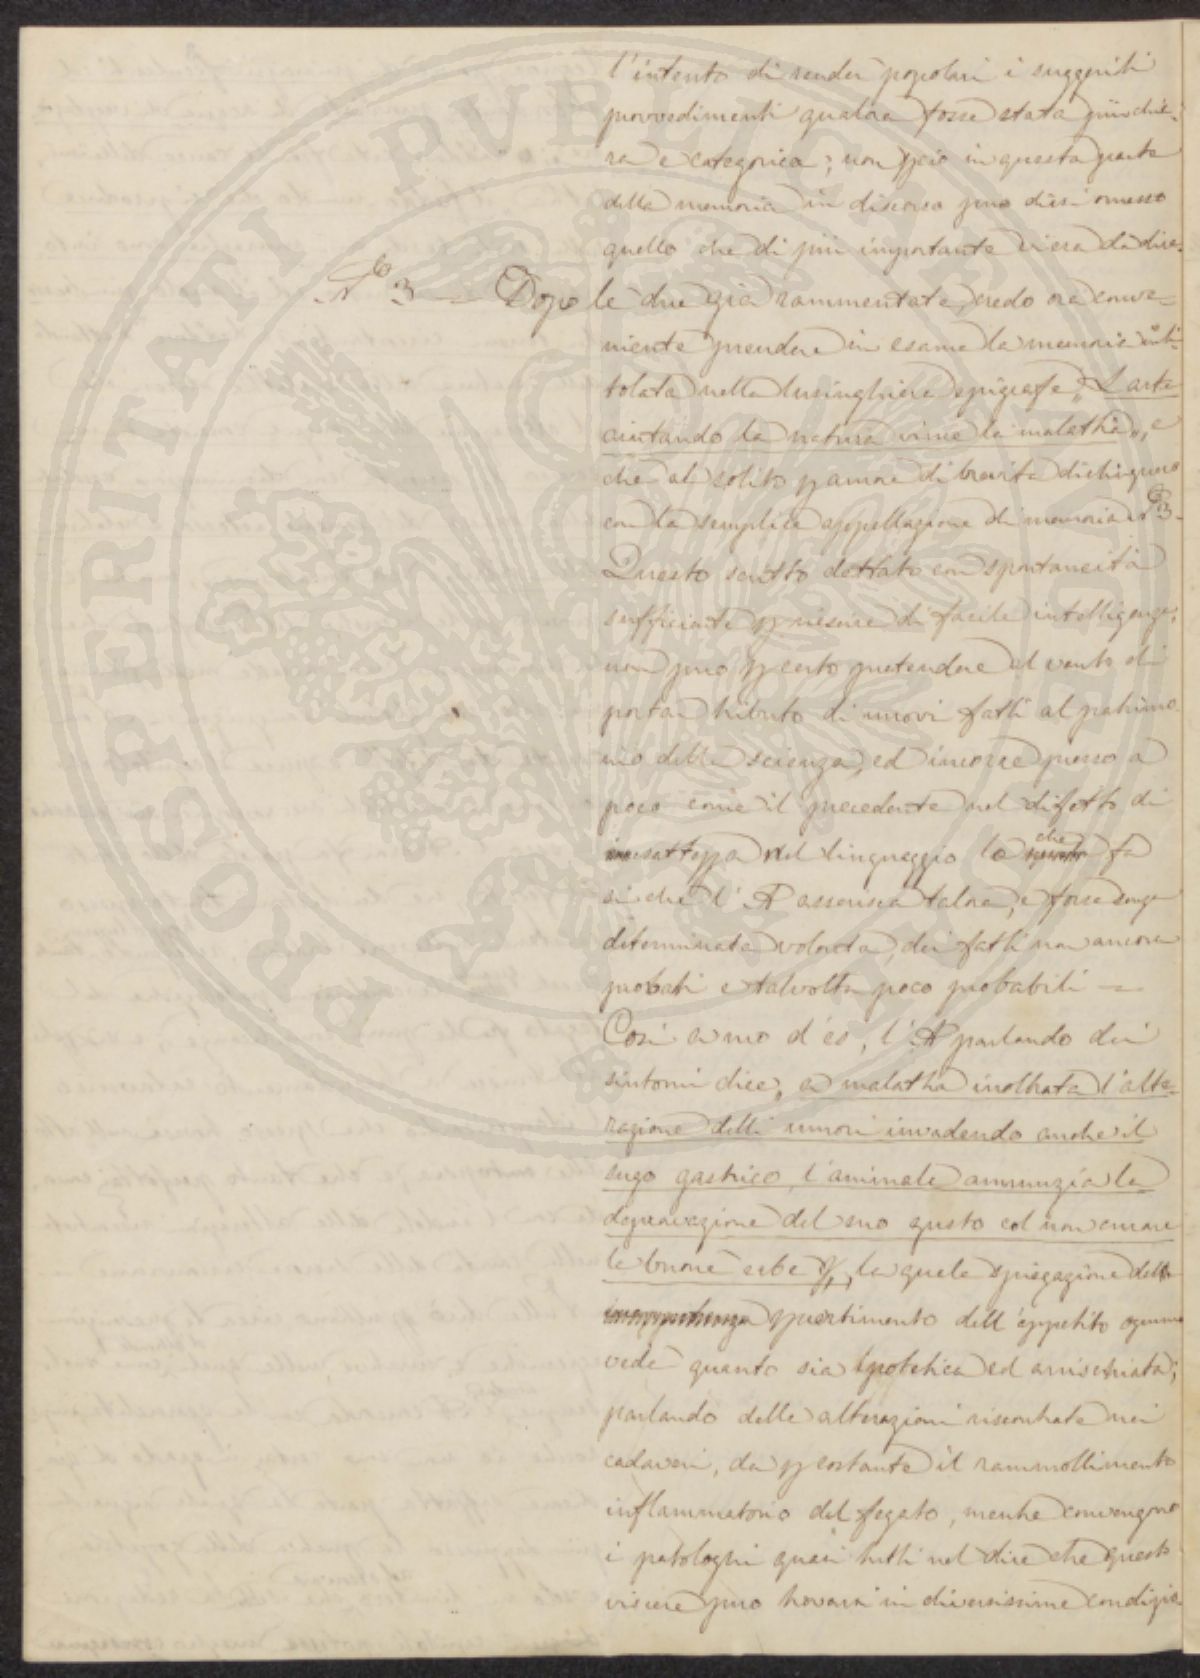 l'intento di render popolari i suggeriti
provvedimenti qualora fosse stata più chia-
ra e categorica; non pciò in questa parte
della memoria in discorso può dirsi omesso
quello che di più importante vi era da dire.
N.° 3 — Dopo le due già rammentate, credo ora conve-
niente prendere in esame la memoria inti-
tolata nella lusinghiera epigrafe „ L'arte
aiutando la natura vince la malattia „, e
che al solito p amore di brevità distinguerò
con la semplice appellazione di memoria N° 3-
Questo scritto dettato con spontaneità
sufficiente p riescire di facile intelligenza,
non può p certo pretendere il vanto di
portar tributo di nuovi fatti al patrimo
nio della scienza, ed incorre presso a
poco come il precedente nel difetto di
inesattezza nel linguaggio lo che fa
si che l'A asserisca talora, e forse senza
diterminata volontà, dei fatti non ancora
probati e talvolta poco probabili —
Così a mo d'es, l'A parlando dei
sintomi dice „ a malattia inoltrata l'alte-
razione delli umori invadendo anche il
sugo gastrico, l'animale annunzia la
depravazione del suo gusto col non curare
le buone erbe „, la quale spiegazione della
pvertimento dell'appetito ognuno
vede quanto sia ipotetica ed arrischiata;
parlando delle alterazioni riscontrate nei
cadaveri, da p costante il rammollimento
inflammatorio del fegato, mentre convengono
i patologhi quasi tutti nel dire che questo
viscere può trovarsi in diversissime condizio